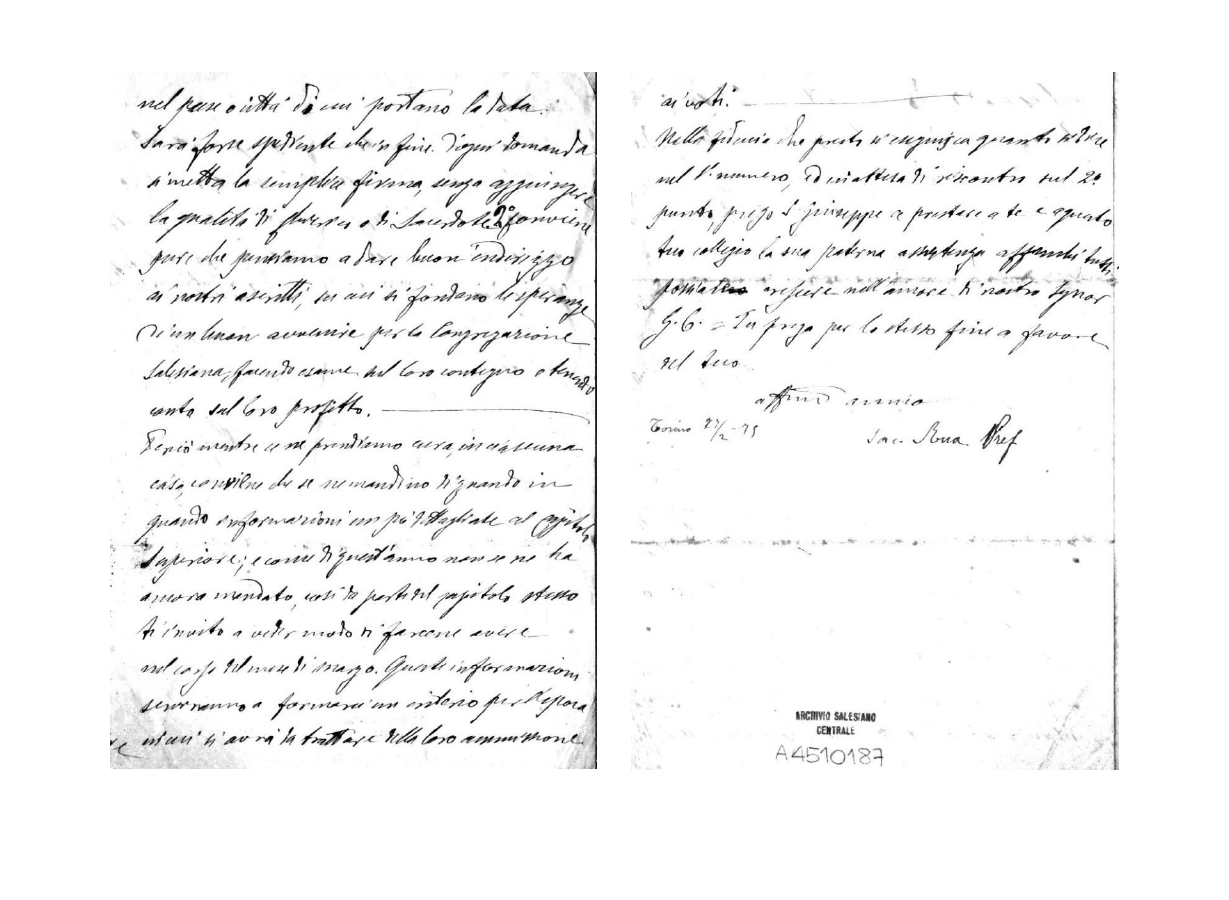 nel paese o città di cui portano la data.
Sarà forse spediente che in fine d'ogni domanda
si metta la semplice firma, senza aggiungere
la qualità di chierico o di Sacerdote 2° Conviene
pure che pensiamo a dare buon indirizzo
ai nostri ascritti, su cui si fondano le speranze
d'un buon avvenire per la Congregazione
Salesiana, facendo esame sul loro contegno e tenendo
conto sul loro profitto.
Perciò mentre ce ne prendiamo cura, in ciascuna
casa, conviene che se ne mandino di quando in
quando informazioni un po' dettagliate al Capitolo
Superiore; e come di quest'anno non se ne ha
ancora mandato, così da parte del capitolo stesso
ti invito a veder modo di farcene avere
nel corso del mese di marzo. Queste informazioni
serviranno a formarci un criterio per l'epoca
in cui si avrà da trattare della loro ammissione
ai voti.
Nella fiducia che presto si eseguisca quanto si dice
nel 1° numero, ed in attesa di riscontro sul 2°
punto, prego S. Giuseppe a prestare a te e a questo
tuo collegio la sua paterna assistenza affinché tutti
possiate crescere nell'amore di nostro Signor
G. C. = Tu prega per lo stesso fine a favore
del tuo
affmo amico
Torino 27/2-75
Sac. Rua Pref
ARCHIVIO SALESIANO
CENTRALE
A4510187